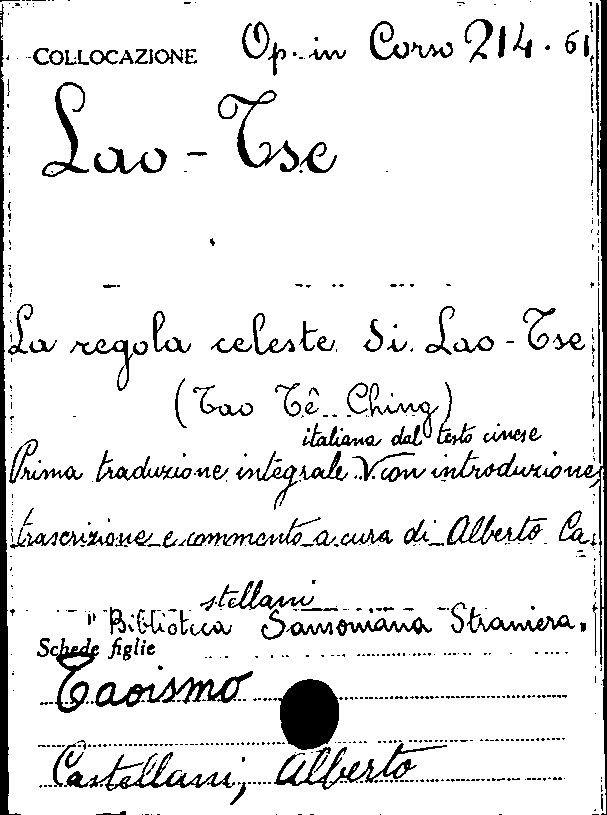 COLLOCAZIONE Op. in Corso 214.61
Lao-Tse
La regola celeste di Lao-Tse
(Tao Tê Ching)
italiana dal testo cinese
Prima traduzione integrale V con introduzione,
trascrizione e commento a cura di Alberto Ca-
stellani
"Biblioteca Sansoniana Straniera"
Schede figlie
Taoismo
Castellani, Alberto